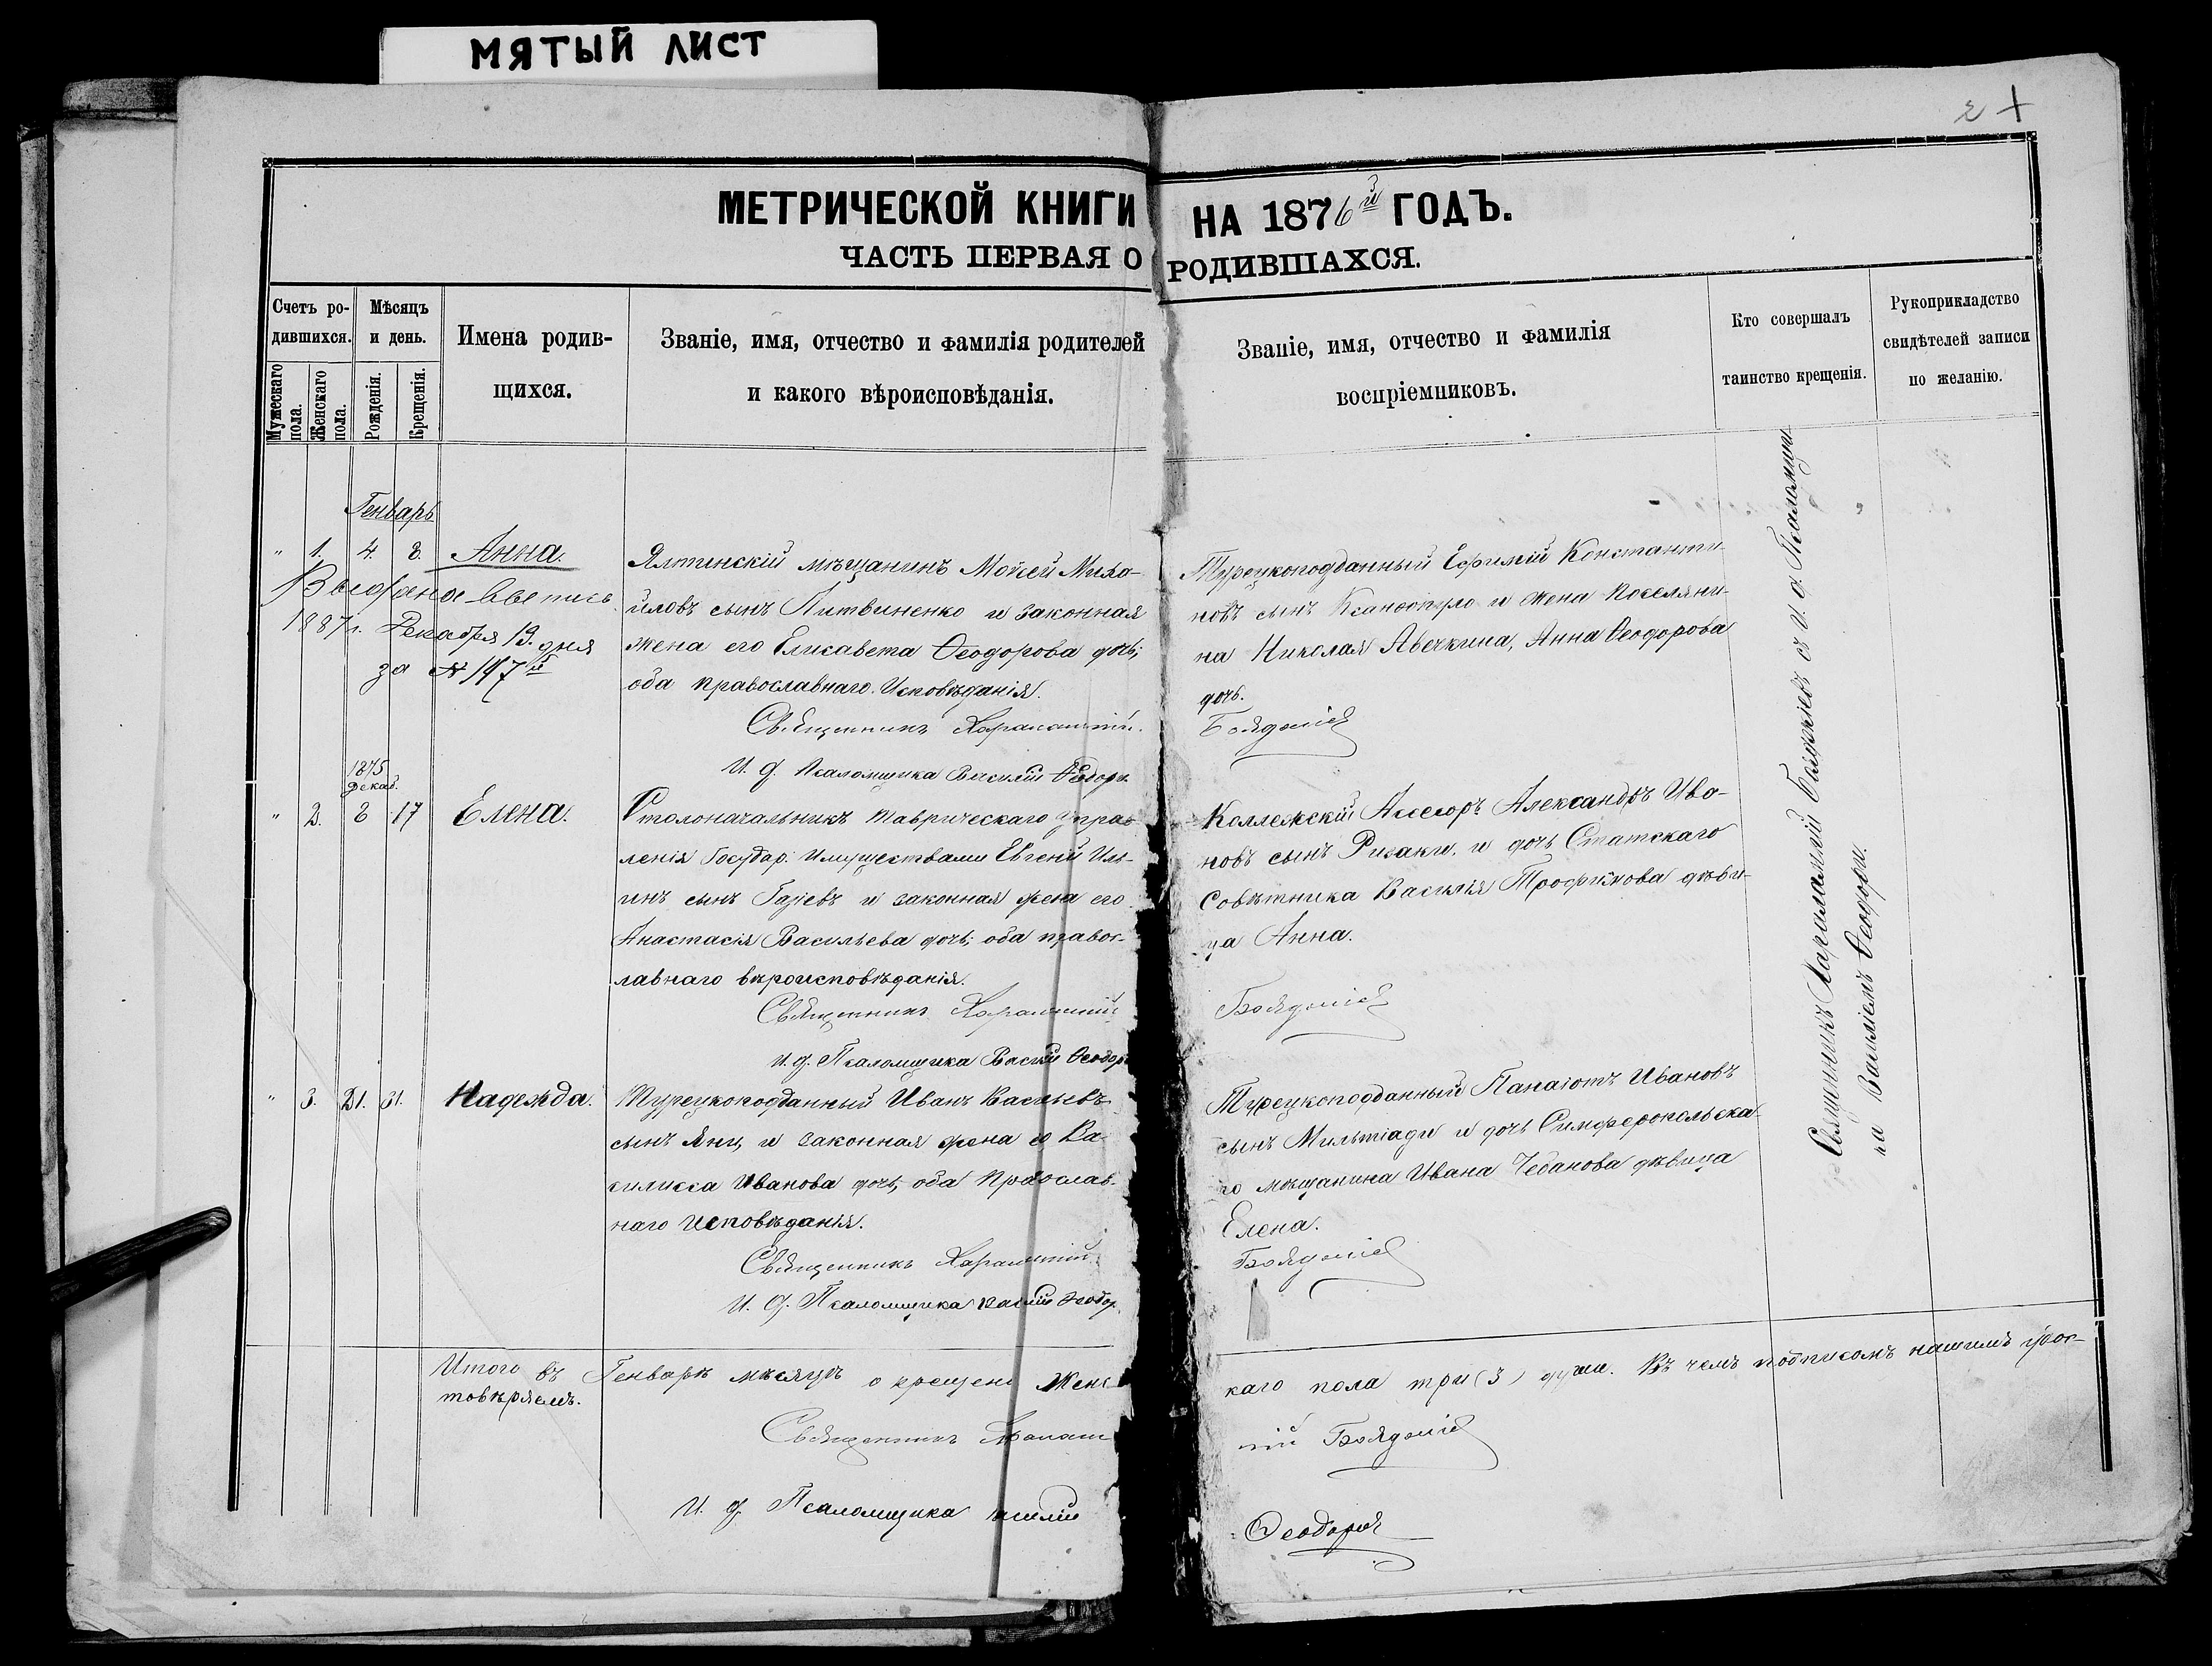 МЯТЫЙ ЛИСТ
МЕТРИЧЕСКОЙ КНИГИ НА 1876й ГОДЪ.
ЧАСТЬ ПЕРВАЯ О РОДИВШАХСЯ.
Счетъ ро-
дившихся.
Мужескаго
пола.
Женскаго
пола.
Мѣсяцъ
и день.
Рожденія.
Крещенія.
Имена родив-
щихся.
Званіе, имя, отчество и фамилія родителей
и какого вѣроисповѣданія.
Званіе, имя, отчество и фамилія
воспріемниковъ.
Кто совершалъ
таинство крещенія.
Рукоприкладство
свидѣтелей записи
по желанію.
Генварь
" 1. 4. 8. Анна.
1887г. Декабря 13. дня
за №
Ялтинскій мѣщанинъ Мойсей Миха-
йловъ сынъ Литвиненко и законная
жена его Елисавета Ѳеодорова дочь;
оба православнаго Исповѣданія.
Священникъ Харалампій
И. д. Псаломщика Василій Ѳеодори
Турецкоподданный Ефимій Константи-
новъ сынъ Ксанфопуло и жена поселяни-
на Николая Авечкина, Анна Ѳеодорова
дочь.
Бояджіев
1875
декаб.
" 2. 8 17 Елена.
Столоначальникъ Таврическаго Управ-
ленія Государ. Имуществами Евгеній Иль-
инъ сынъ Гаіевъ и законная жена его
Анастасія Васильева дочь; оба правос-
лавнаго вѣроисповѣданія.
Священникъ Харалампій
И. д. Псаломщика Василій Ѳеодори
Коллежскій Ассесоръ Александръ Ива-
новъ сынъ Ризаки, и дочь Статскаго
Совѣтника Василія Трофимова дѣви-
ца Анна.
Бояджіев
" 3. 21. 31. Надежда.
Турецкоподданный Иванъ Васильевъ
сынъ Яни, и законная жена его Ва-
силисса Иванова дочь, оба Православ-
наго Исповѣданія.
Священникъ Харалампій
И. д. Псаломщика Василій Ѳеодори
Турецкоподданный Панаіотъ Ивановъ
сынъ Мильтіади и дочь Симферопольска-
го мѣщанина Ивана Чебанова дѣвица
Елена.
Бояджіев
Священникъ Харалампій Бояджіевъ съ И. д. Псаломщи-
ка Василіемъ Ѳеодори.
Итого въ Генварѣ мѣсяцѣ окрещено Женс-
каго пола три (3) души. Въ чемъ подписомъ нашимъ удос-
товѣряемъ.
Священникъ Харалам
пій Бояджіев
И. д. Псаломщика Василій
Ѳеодори